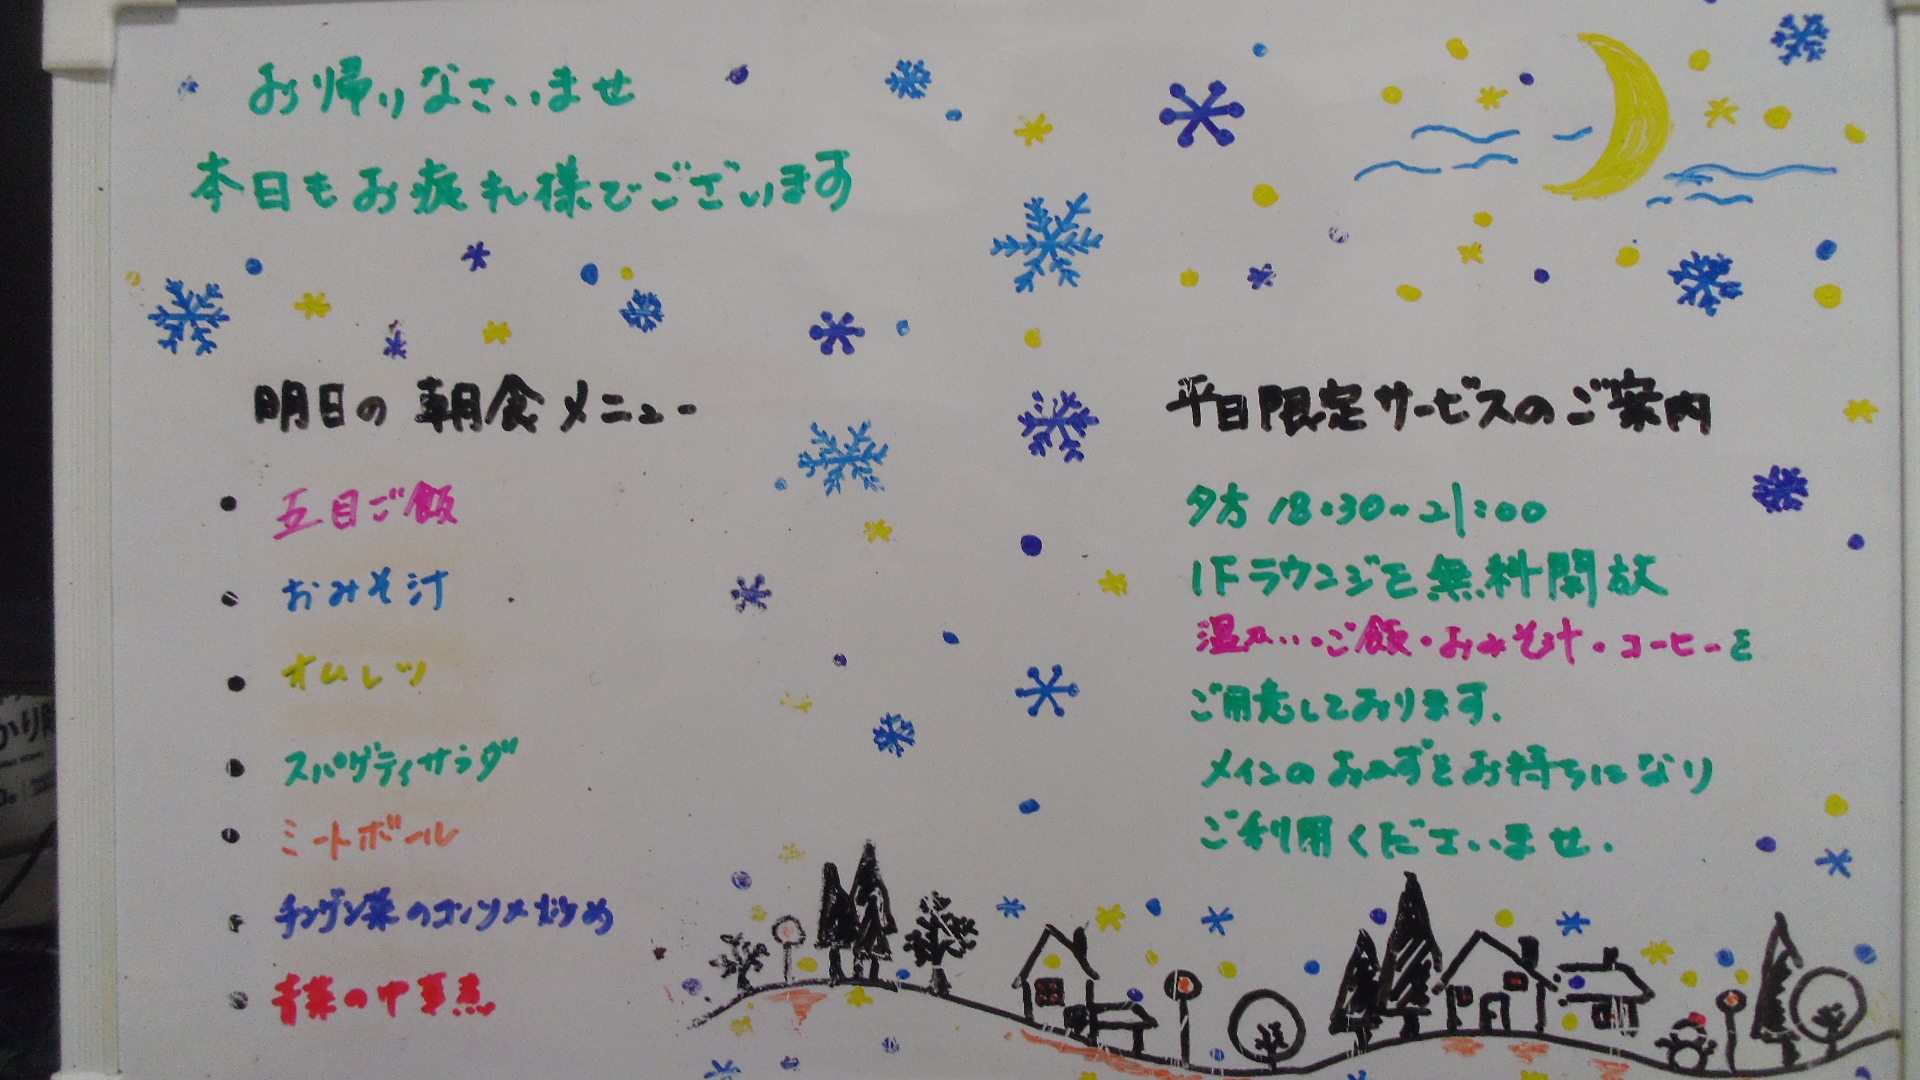 お帰りなさいませ
本日もお疲れ様でございます
明日の朝食メニュー
・五目ご飯
・おみそ汁
・オムレツ
・スパゲティサラダ
・ミートボール
・チンゲン菜のコンソメ炒め
・青菜の中華煮
平日限定サービスのご案内
夕方 18:30~21:00
1Fラウンジを無料開放
温かい・ご飯・おみそ汁・コーヒーを
ご用意しております.
メインのおかずをお持ちになり
ご利用くださいませ.